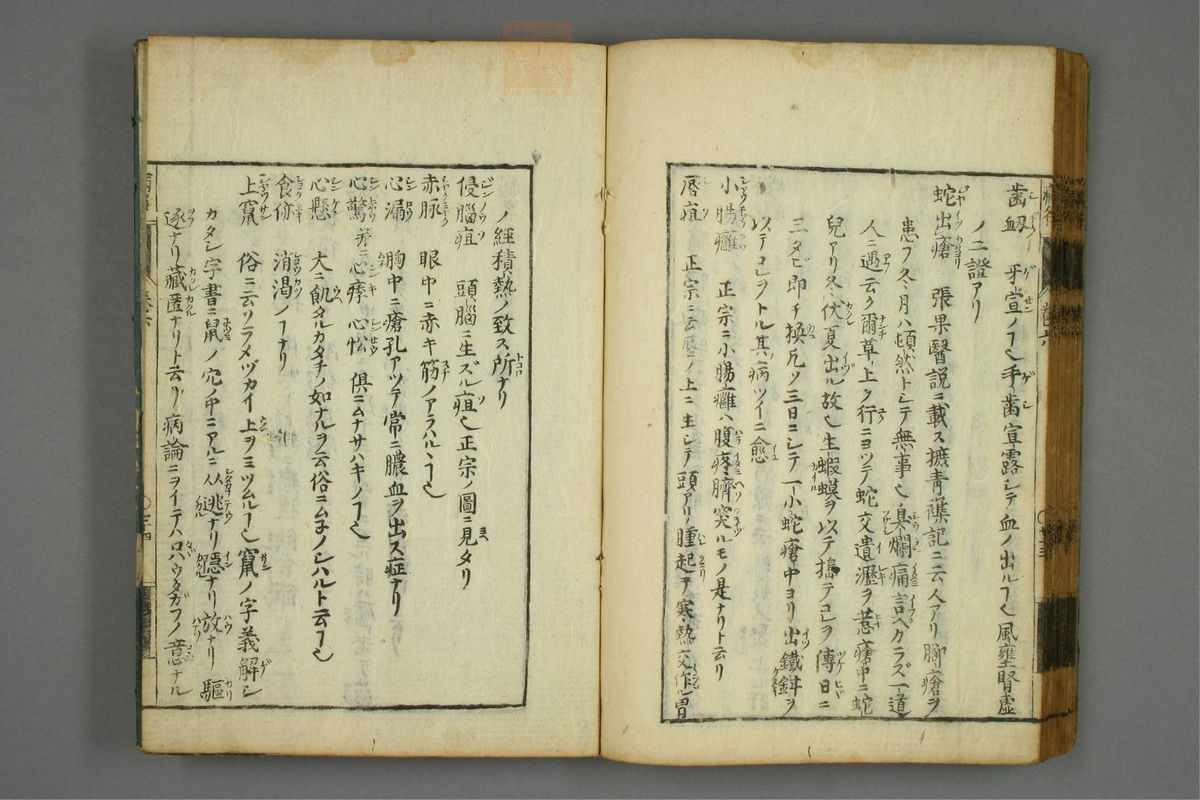 歯衂 牙宣ノ𬼀手歯宣露シテ血ノ出ル𬼀風壅腎虚
ノ二證アリ
蛇出瘡 張果醫説ニ載ス摭青襍記ニ云人アリ脚瘡ヲ
患フ冬月ハ頓然トシテ無事也臭爛痛言ベカラズ一道
人ニ遇云ク爾草上ク行ニヨツテ蛇交遺瀝ヲ惹瘡中ニ蛇
兒アリ冬伏夏出ル故也生蝦蟆ヲ以テ搗テコレヲ傅日ニ
三タビ即チ換凡ソ三日ニシテ一小蛇瘡中ヨリ出鐵鉗ヲ
以テコレヲトル其病ツイニ愈
小腸癰 正宗ニ小腸癰ハ腹疼臍突ルモノ是ナリト云リ
唇疽 正宗ニ云唇ノ上ニ生シテ頭アリ腫起テ寒熱交作心胃
ノ経積熱ノ致ス所ナリ
侵腦疽 頭腦ニ生ズル疽也正宗ノ圖ニ見タリ
赤脉 眼中ニ赤キ筋ノアラハルヽ𬼀也
心漏 胸中ニ瘡孔アツテ常ニ膿血ヲ出ス症ナリ
心驚并ニ心瘴心忪 俱ニムナサハキノ𬼀也
心懸 大ニ飢タルカタチノ如ナルヲ云俗ニムネノシハルト云𬼀也
食㑊 消渇ノ𬼀ナリ
上竄 俗ニ云ソラメヅカイ上ヲミツムル𬼀也竄ノ字義解シ
カタシ字書ニ鼠ノ穴ノ中ニアルニ从逃ナリ隱ナリ放ナリ驅
逐ナリ藏匿ナリト云リ病論ニヲイテハロバウタガフノ意ナル